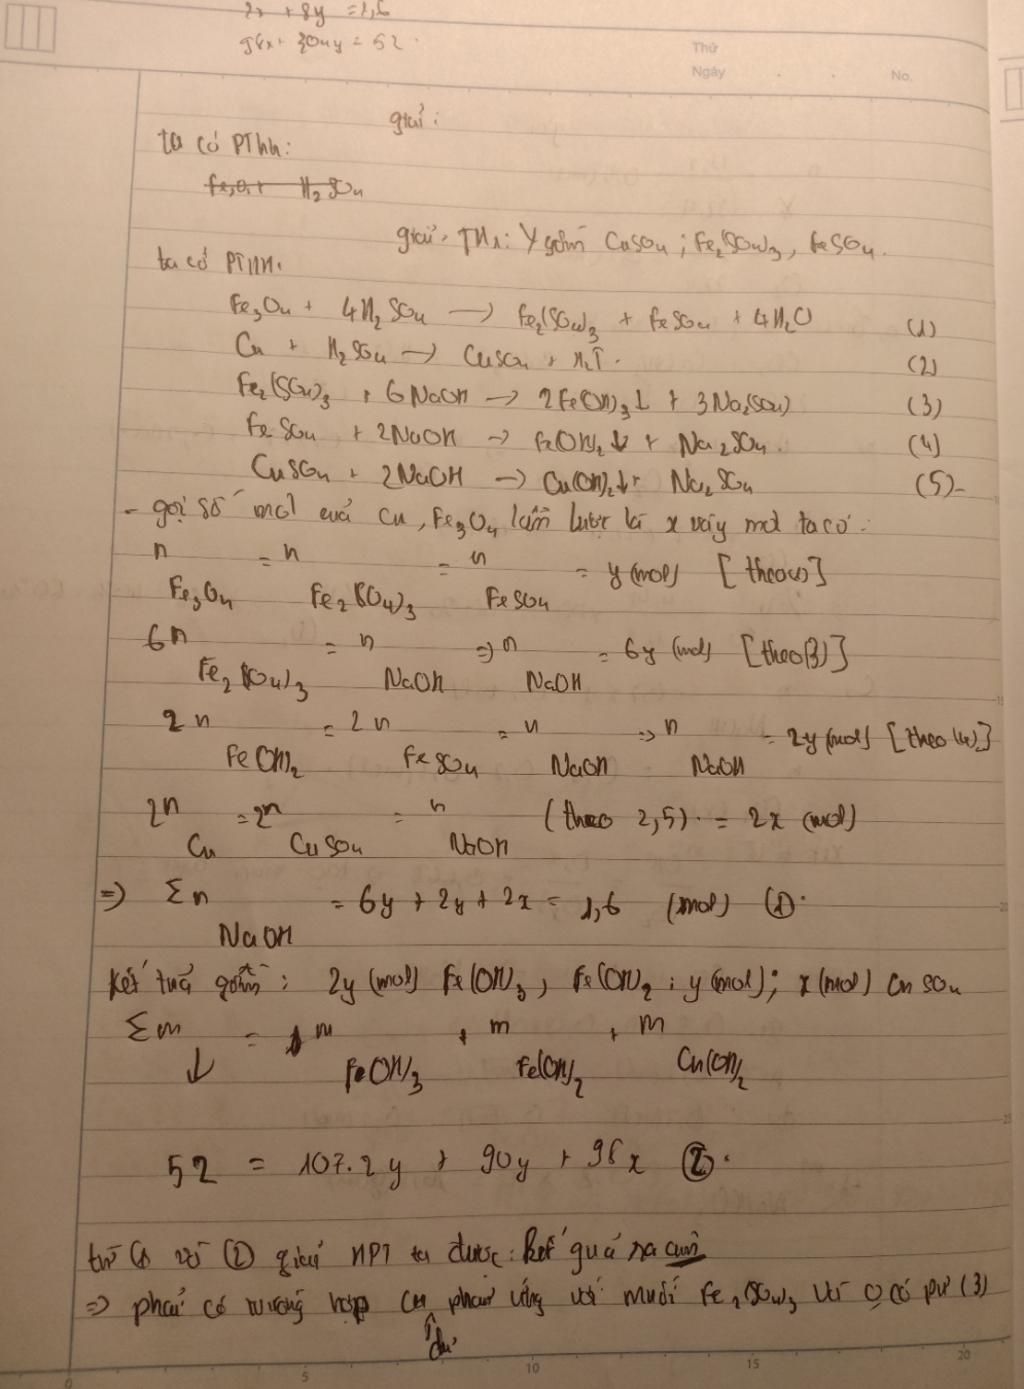 2x + 8y = 1,6
98x + 304y = 52.
Thứ
Ngày . . No.
giải:
ta có PThh:
Fe3O4 + H2SO4
giải. TH1: Y gồm CuSO4; Fe2(SO4)3, FeSO4.
ta có PTHH.
Fe3O4 + 4H2SO4 → Fe2(SO4)3 + FeSO4 + 4H2O (1)
Cu + H2SO4 → CuSO4 + H2↑. (2)
Fe2(SO4)3 + 6NaOH → 2Fe(OH)3↓ + 3Na2(SO4) (3)
FeSO4 + 2NaOH → Fe(OH)2↓ + Na2SO4. (4)
CuSO4 + 2NaOH → Cu(OH)2↓ + Na2SO4 (5)-
- gọi số mol của Cu, Fe3O4 lần lượt là x và y mol ta có:
n Fe3O4 = n Fe2(SO4)3 = n FeSO4 = y (mol) [theo(1)]
6n Fe2(SO4)3 = n NaOH => n NaOH = 6y (mol) [theo(3)]
2n Fe(OH)2 = 2n FeSO4 = n NaOH => n NaOH = 2y (mol) [theo (4)]
2n Cu = 2n CuSO4 = n NaOH (theo 2,5). = 2x (mol)
=> Σn NaOH = 6y + 2y + 2x = 1,6 (mol) (1).
kết tủa gồm: 2y (mol) Fe(OH)3, Fe(OH)2: y (mol); x (mol) CuSO4
Σm↓ = m Fe(OH)3 + m Fe(OH)2 + m Cu(OH)2
52 = 107.2y + 90y + 98x (2).
từ (1) và (2) giải HPT ta được: kết quả ra
=> phải có trường hợp Cu phản ứng với muối Fe2(SO4)3 và có pư (3)
dư
5 10 15 20